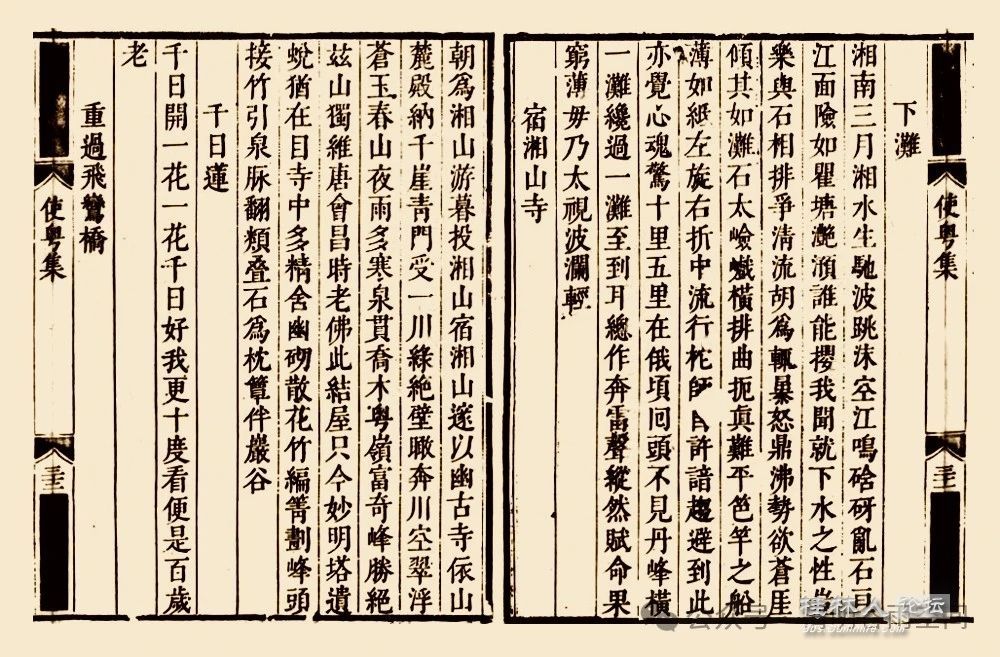 使粵集
三十三
下灘
湘南三月湘水生馳波跳沫空江鳴硌砑亂石亘
江面險如瞿塘灔澦誰能攖我聞就下水之性此
樂與石相排爭清流胡爲輒暴怒鼎沸勢欲蒼厓
傾其如灘石太嶮巇橫排曲扼眞難平笆竿之船
薄如紙左旋右折中流行柁師自許諳趨避到此
亦覺心魂驚十里五里在俄頃囘頭不見丹峰橫
一灘纔過一灘至到耳總作奔雷聲縱然賦命果
窮薄毋乃太視波瀾輕
宿湘山寺
朝爲湘山游暮投湘山宿湘山邃以幽古寺依山
麓殿納千崖靑門受一川綠絕壁瞰奔川空翠浮
蒼玉春山夜雨多寒泉貫喬木粵嶺富奇峰勝絕
玆山獨維唐會昌時老佛此結屋只今妙明塔遺
蛻猶在目寺中多精舍幽砌散花竹編箐劃峰頭
接竹引泉脉翻類叠石爲枕簟伴巖谷
千日蓮
千日開一花一花千日好我更十度看便是百歲
老
重過飛鸞橋
使粵集
三十三
桂林人论坛
公众号